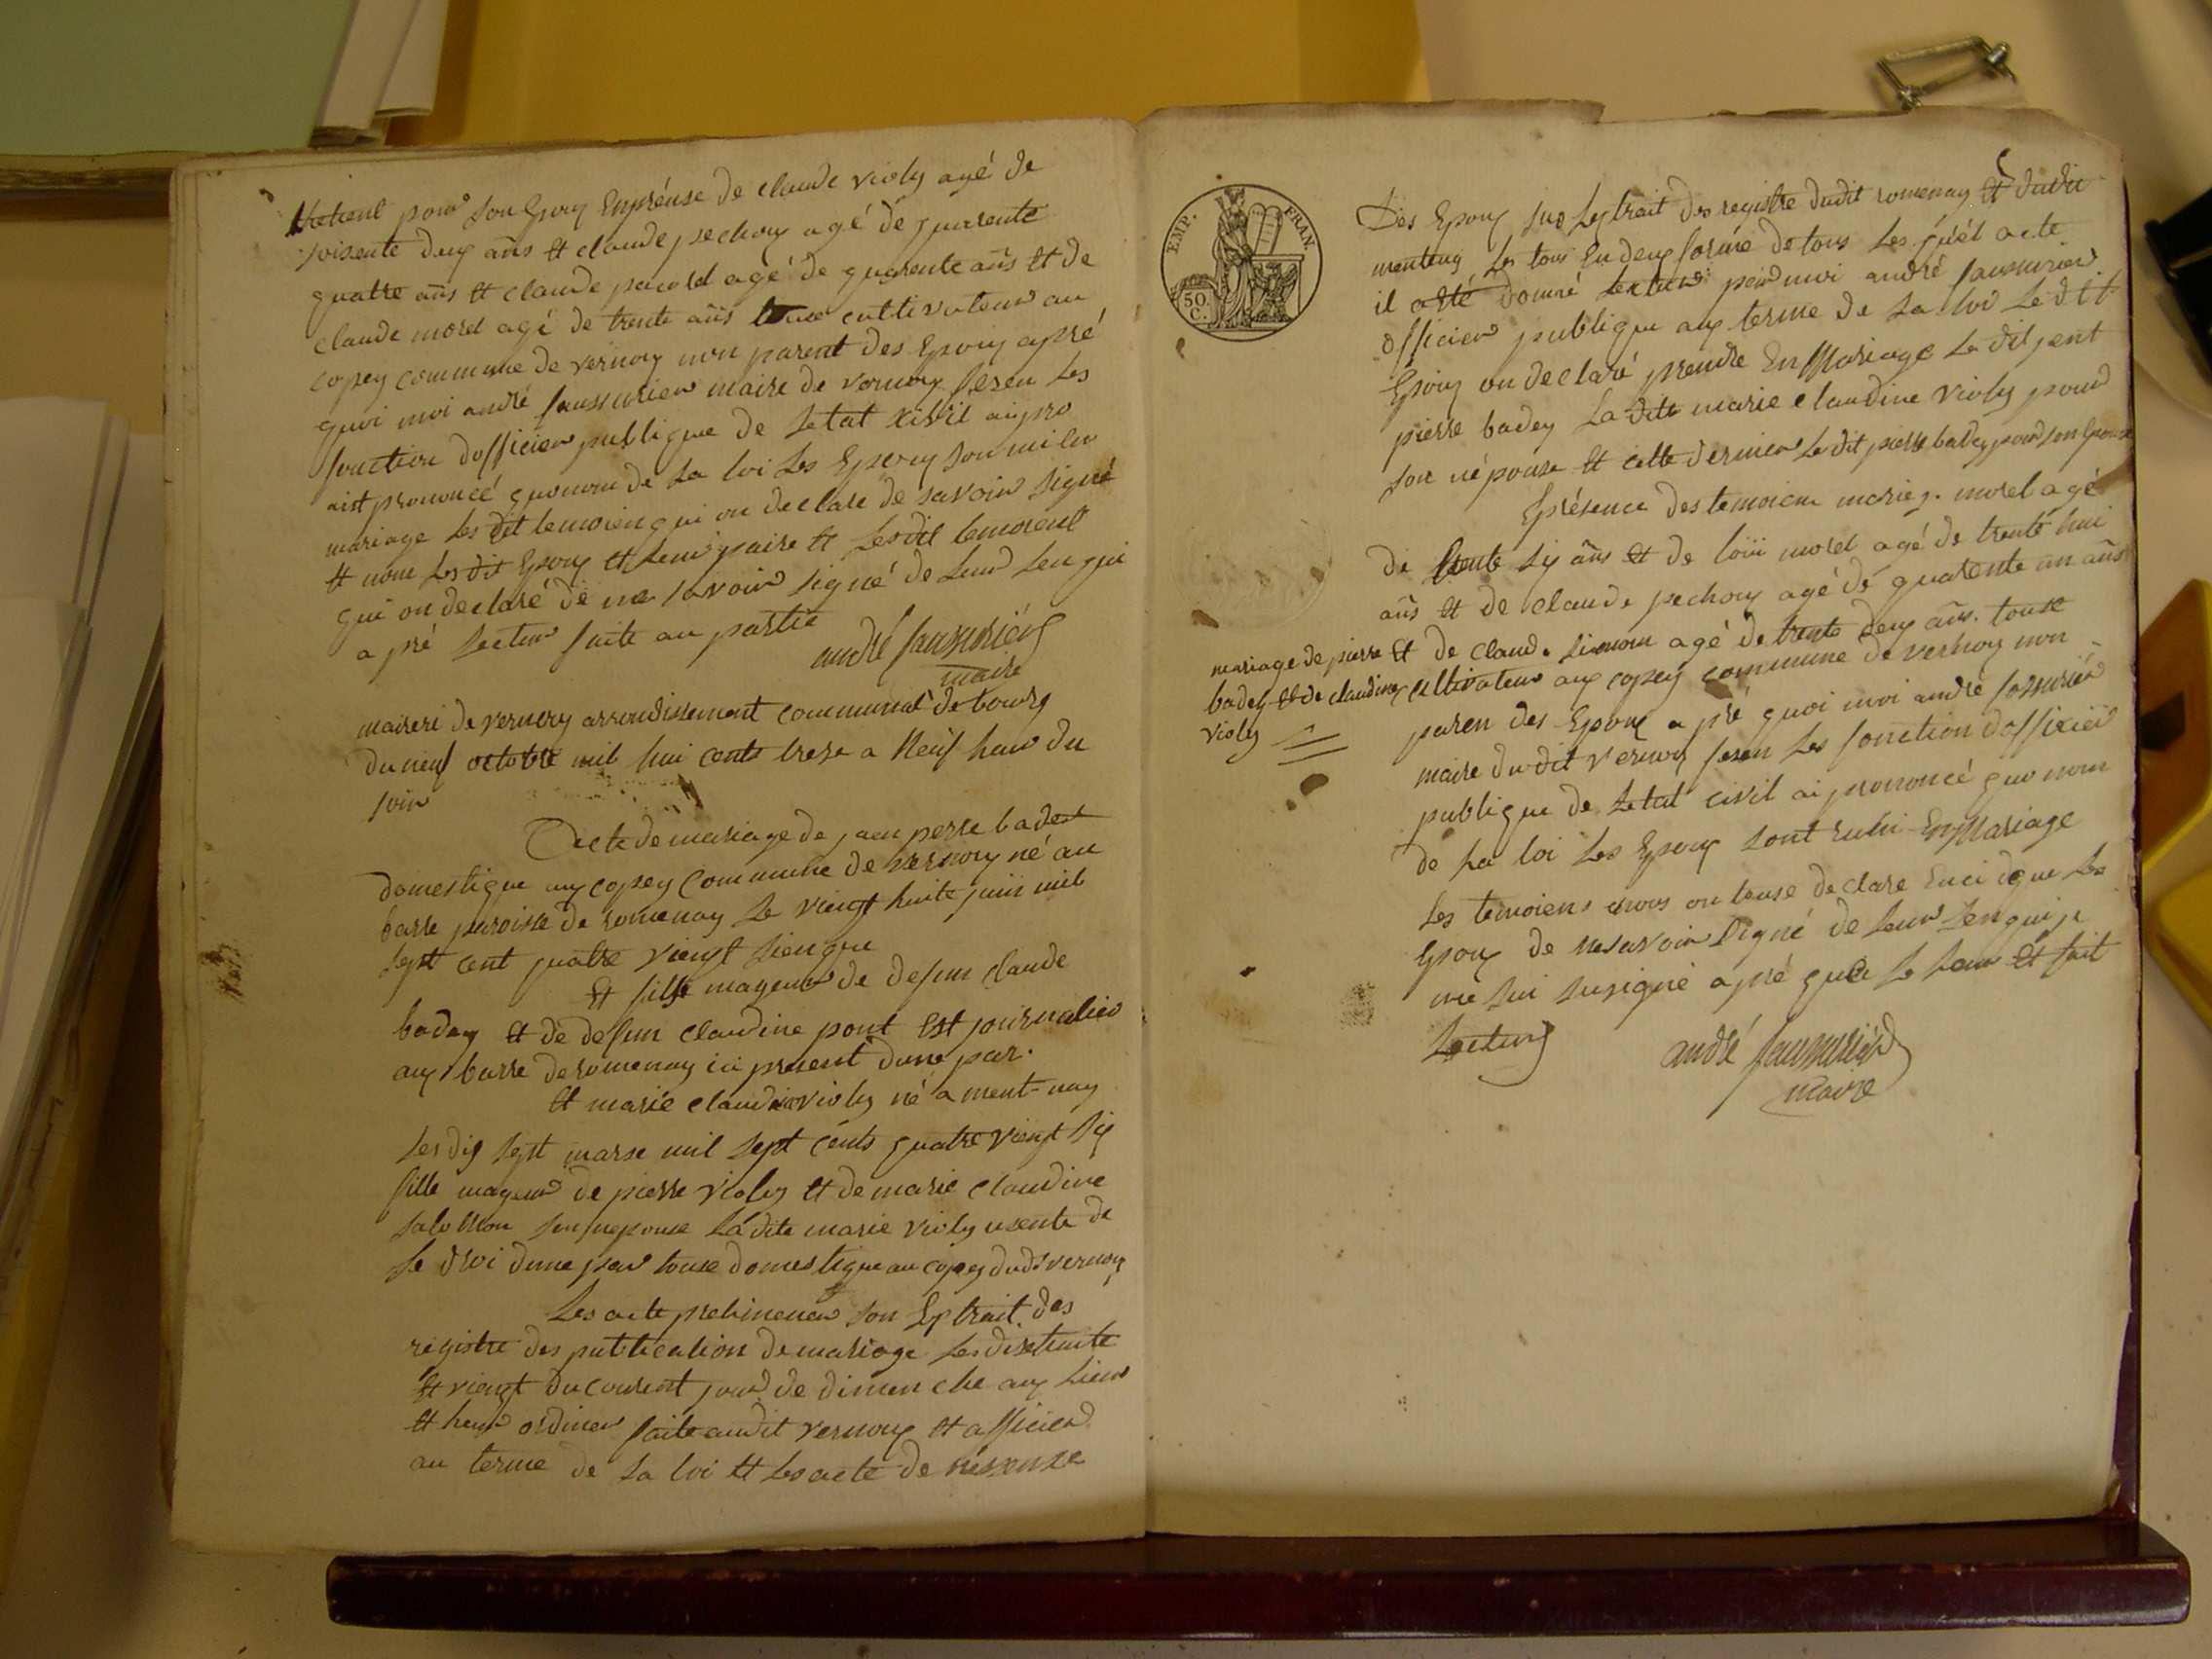 pour son Epoux Enpréense de claude violy agé de
soisente deux ans et claude pechoux agé de quarente
quatre ans et claude pacord agé de quarente ans et de
claude morel agé de trente ans touse cultivateur au
copey commune de vernoux non parent des Epoux apré
quoi moi andré saussurier maire de vernoux fesen les
fonction dofficier publique de letat xivil ai pro
ait prononcé quonom de la loi les Epoux son uni en
mariage les dit temoien qui on declare de savoir signé
et nom les dit Epoux et leur paire et lesdit temoient
qui on declaré de ne savoir signé de leur sen qui
a pré lectur faite au partie
andré saussurier
maire
maireri de vernoux arrondissement communal de bourg
du neuf octobre mil hui cents treze a Neuf heur du
soir
Acte de mariage de jaen pierre badey
domestique aux copey commune de vernoux né au
barre paroisse de romenay le viengt huite juin mil
sept cent quatre viengt sienque
Et fils mageur de defun claude
badey et de defun claudine pont Est journalier
aux barre de romenay ici present dune par.
et marie claudine violy né a ment-nay
les dix sept marse mil sept cents quatre viengt six
fille mageur de pierre violy et de marie claudine
salomon son nepouse la dite marie violy usente de
se droi dune par touse domestique au copey dudi vernoux
Les acte preliminer son Extrait des
registre des publication de mariage les disethuite
et viengt du courent jour de dimenche aux lieur
et heur ordiner faite audit vernoux et afficier
au terme de la loi et les acte de nésense
Des Epoux sus Lextrait des registre dudit romenay et dudit
mentenay les tous En deux forme de tous les quél acte
il a été donné lectur par moi andré saussurier
officier publique aux terme de la loi le dit
Epoux on declaré prendre En Mariage le dit jent
pierre badey La dite marie claudine violy pour
son népouse et cette dernier le dit pierre badey pour son Epouse
Eprésence des temoien marie j. morel agé
de trente six ans et de loui morel agé de trente hui
ans et de claude pechoux agé de quarente un ans
et de claude simonn agé de trente deux ans. touse
cultivateur aux copey commune de vernoux non
mariage de pierre
badey et de claudine
violy
paren des Epoux a pré quoi moi andré sossurier
maire du dit vernoux fesen les fonction dofficier
publique de letat civil ai prononcé quo nom
de la loi les Epoux sont runi En Mariage
les temoiens nous on touse declare Enci que les
Epoux de nesavoir signé de leur sen qui je
me sui susigné apré que le leur et fait
Lectur
andré saussurier
maire
EMP. FRAN.
50.
C.